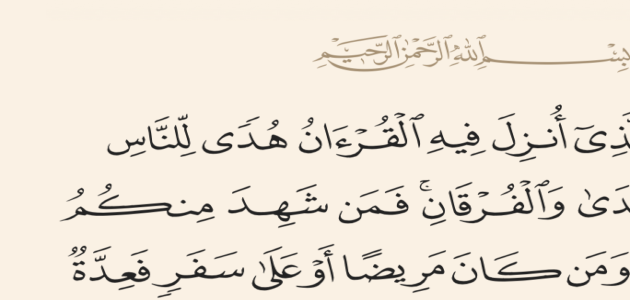 بِسْمِ ٱللَّهِ ٱلرَّحْمَٰنِ ٱلرَّحِيمِ
أُنزِلَ فِيهِ ٱلْقُرْءَانُ هُدًى لِّلنَّاسِ
وَٱلْفُرْقَانِ ۚ فَمَن شَهِدَ مِنكُمُ
وَمَن كَانَ مَرِيضًا أَوْ عَلَىٰ سَفَرٍ فَعِدَّةٌ